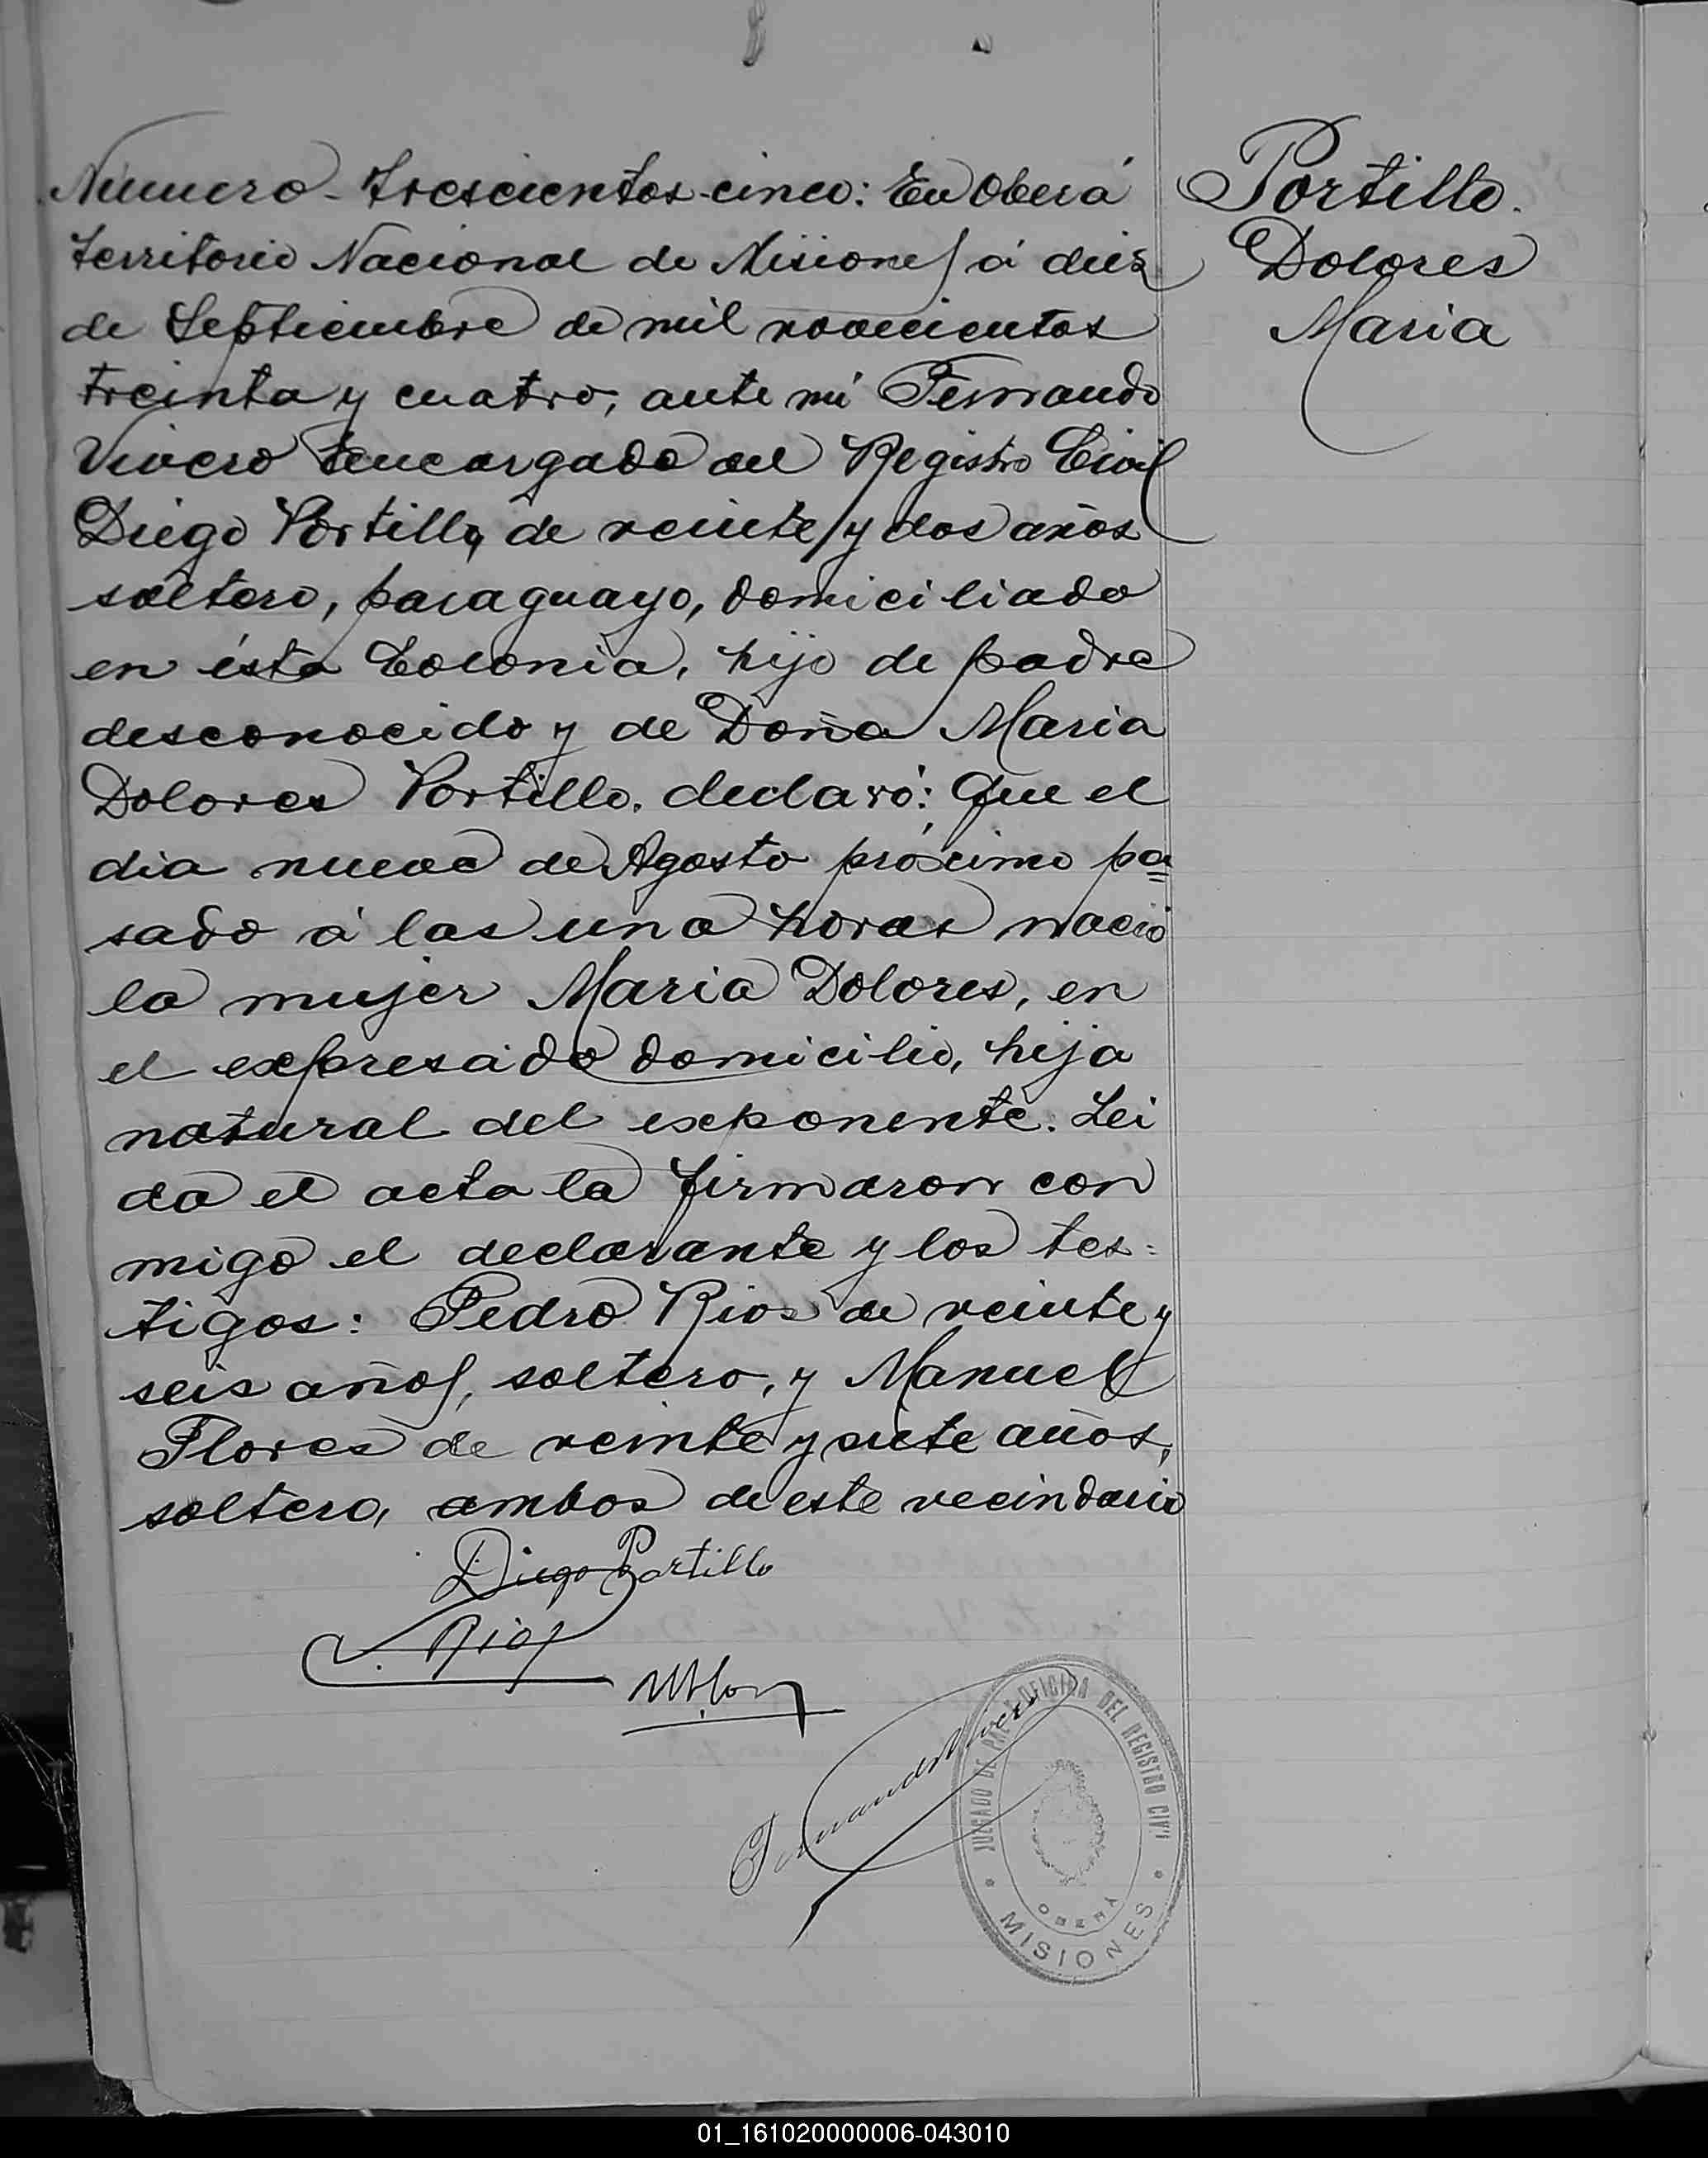 Número - trescientos cinco: En Oberá
territorio Nacional de Misiones á diez
de Septiembre de mil novecientos
treinta y cuatro, ante mi Fernando
Vivero encargado del Registro Civil
Diego Portillo, de veinte y dos años
soltero, paraguayo, domiciliado
en ésta Colonia, hijo de padre
desconocido y de Doña Maria
Dolores Portillo. declaró: Que el
dia nueve de Agosto próximo pa=
sado á las una horas nació
la mujer Maria Dolores, en
el expresado domicilio, hija
natural del exponente. Lei
da el acta la firmaron con
migo el declarante y los tes=
tigos: Pedro Rios de veinte y
seis años, soltero, y Manuel
Flores de veinte y siete años,
soltero, ambos de este vecindario
Portillo.
Dolores
Maria
Diego Portillo
Rios
Fernando Vivero
JUZGADO DE PAZ Y OFICINA DEL REGISTRO CIVIL
OBERÁ
* MISIONES *
01_161020000006-043010